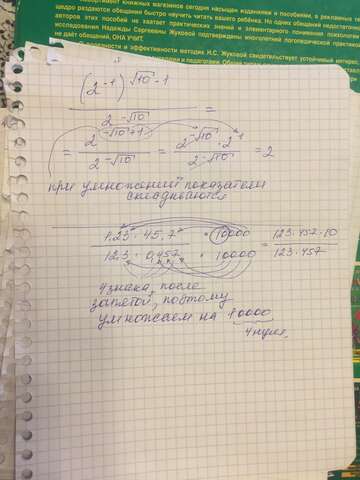 ассортимент книжных магазинов сегодня насыщен изданиями и пособиями, в рекламных
щедро раздаются обещания быстро научить читать вашего ребёнка. Но одних обещаний недостаточно
авторов этих пособий не хватает практических знаний и элементарного понимания психологии
исследования Надежды Сергеевны Жуковой подтверждены многолетней логопедической практикой
не даёт обещаний, ОНА УЧИТ.
и эффективности методик Н.С. Жуковой свидетельствует устойчивый интерес,
(2^-1)^√10-1
2^-√10 =
= 2^-√10+1 / 2^-√10 = 2^-√10 · 2^1 / 2^-√10 = 2
при умножении показатели
складываются
1,23 · 45,7 · 10000 / 12,3 · 0,457 · 10000 = 123·457·10 / 123·457
4 знака после
запятой, поэтому
умножаем на 10000
4 нуля